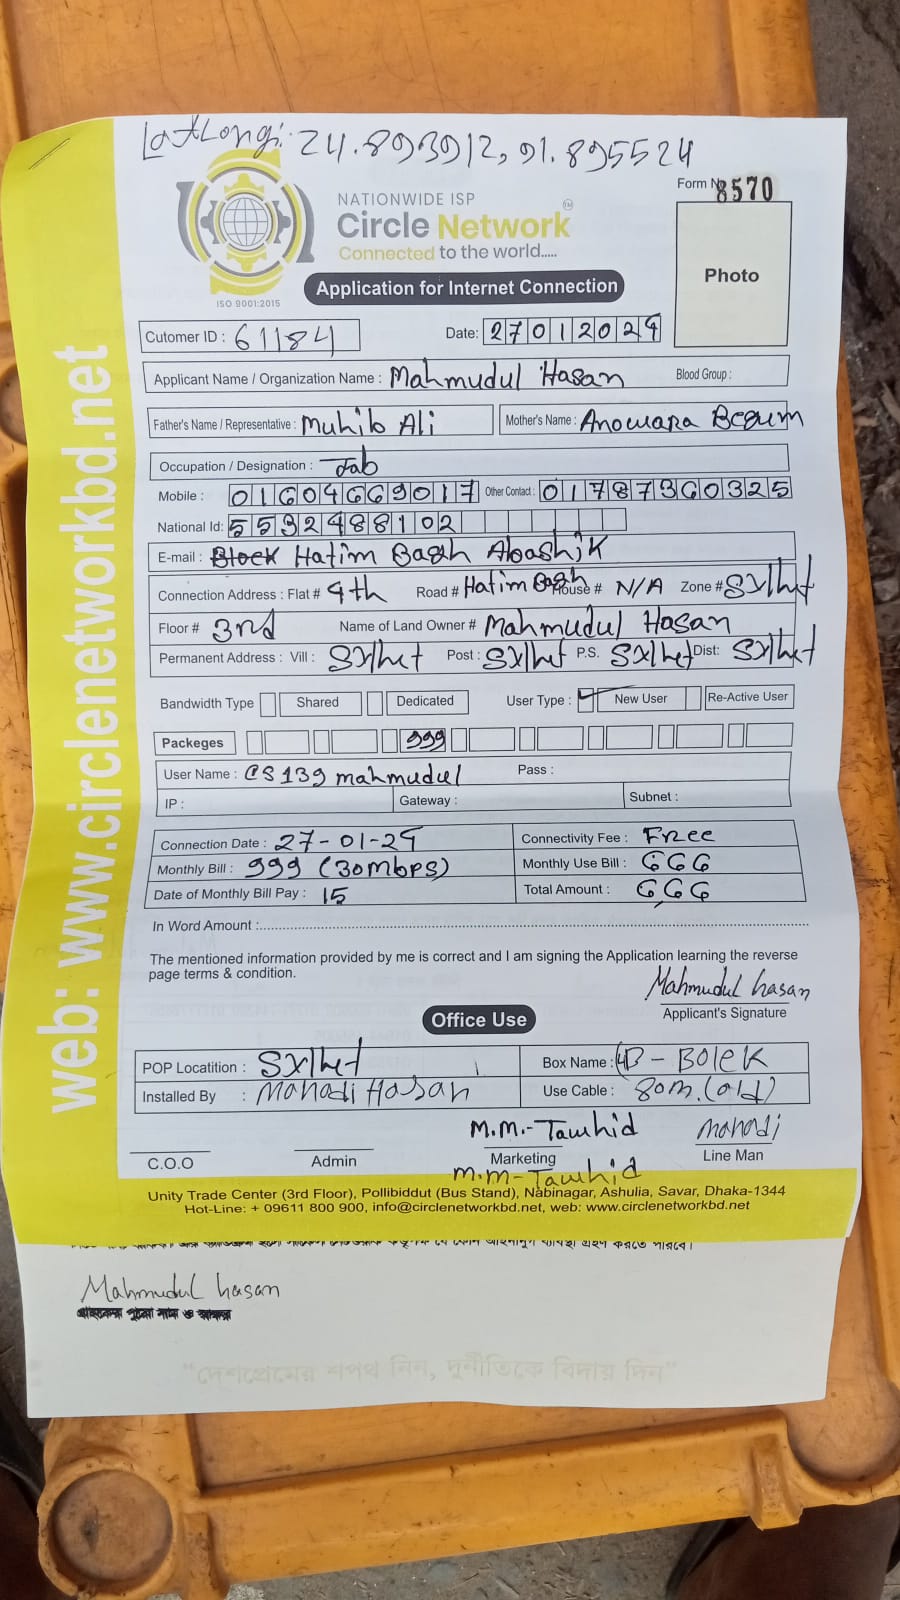 LatLongi: 24.893912, 91.895524
Form No 8570
NATIONWIDE ISP
Circle Network TM
Connected to the world.....
ISO 9001:2015
Application for Internet Connection
Photo
Cutomer ID : 61184 Date: 27012024
Applicant Name / Organization Name : Mahmudul Hasan Blood Group :
Father's Name / Representative : Muhib Ali Mother's Name : Anowara Begum
Occupation / Designation : Job
Mobile : 01604669017 Other Contact : 01787360325
National Id: 5532488102
E-mail : Block Hatim Bagh Abashik
Connection Address : Flat # 4th Road # Hatim Bagh House # N/A Zone # Sylhet
Floor # 3rd Name of Land Owner # Mahmudul Hasan
Permanent Address : Vill : Sylhet Post : Sylhet P.S. Sylhet Dist: Sylhet
Bandwidth Type Shared Dedicated User Type : New User Re-Active User
Packeges 999
User Name : CS139mahmudul Pass :
IP : Gateway : Subnet :
Connection Date : 27-01-24 Connectivity Fee : Free
Monthly Bill : 999 (30mbps) Monthly Use Bill : 666
Date of Monthly Bill Pay : 15 Total Amount : 666
In Word Amount :
The mentioned information provided by me is correct and I am signing the Application learning the reverse
page terms & condition.
Mahmudul hasan
Applicant's Signature
Office Use
POP Locatition : Sylhet Box Name : B - Bolek
Installed By : Mahadi Hasan Use Cable : 80m. (old)
M.M.- Tawhid Mahadi
C.O.O Admin Marketing Line Man
M.M- Tawhid
Unity Trade Center (3rd Floor), Pollibiddut (Bus Stand), Nabinagar, Ashulia, Savar, Dhaka-1344
Hot-Line: + 09611 800 900, info@circlenetworkbd.net, web: www.circlenetworkbd.net
web: www.circlenetworkbd.net
Mahmudul hasan
"দেশপ্রেমের শপথ নিন, দুর্নীতিকে বিদায় দিন"